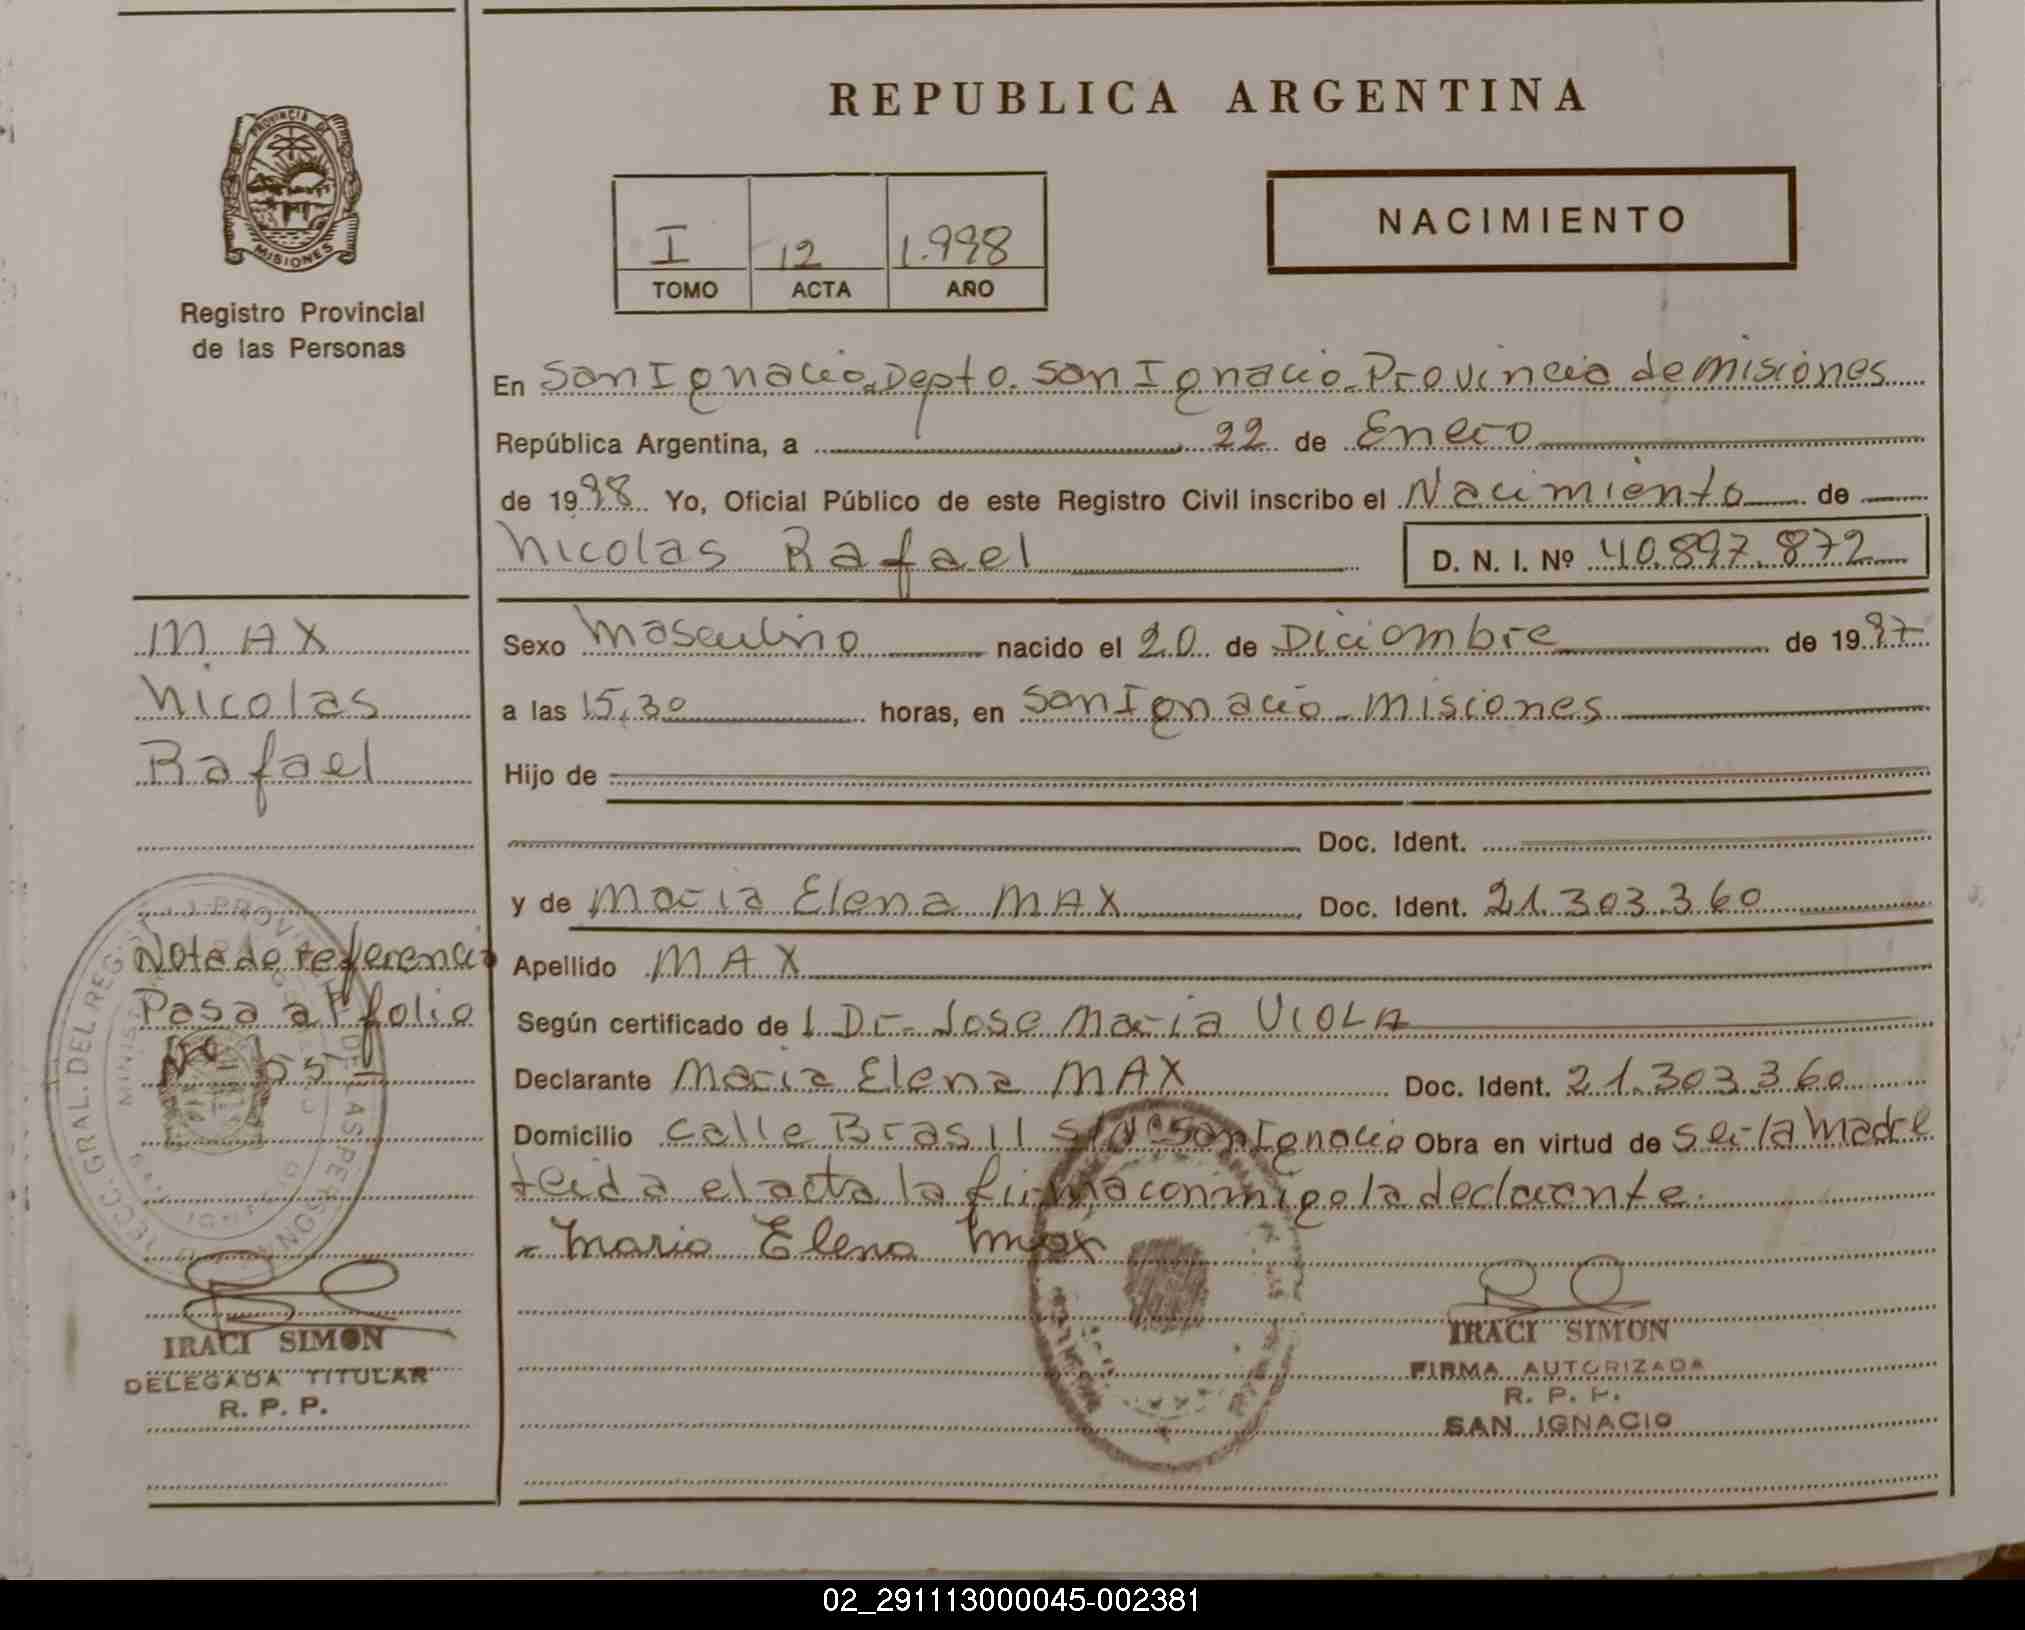 REPUBLICA ARGENTINA
PROVINCIA DE
MISIONES
Registro Provincial
de las Personas
NACIMIENTO
I 12 1.998
TOMO ACTA AÑO
En San Ignacio Depto. San Ignacio. Provincia de Misiones
República Argentina, a 22 de Enero
de 1998 Yo, Oficial Público de este Registro Civil inscribo el Nacimiento de
Nicolas Rafael D. N. I. Nº 40.897.872
MAX
Nicolas
Rafael
Sexo Masculino nacido el 20 de Diciembre de 1997
a las 15,30 horas, en San Ignacio - Misiones
Hijo de
Doc. Ident.
y de Maria Elena MAX Doc. Ident. 21.303.360
Apellido MAX
Según certificado de l Dr. Jose Maria VIOLA
Declarante Maria Elena MAX Doc. Ident. 21.303.360
Domicilio Calle Brasil S/Nº San Ignacio Obra en virtud de ser la madre
leida el acta la firma conmigo la declarante.
- Maria Elena Max
Nota de referencia
Pasa al folio
Nº
IRACI SIMON
DELEGADA TITULAR
R. P. P.
IRACI SIMON
FIRMA AUTORIZADA
R. P. P.
SAN IGNACIO
02_291113000045-002381